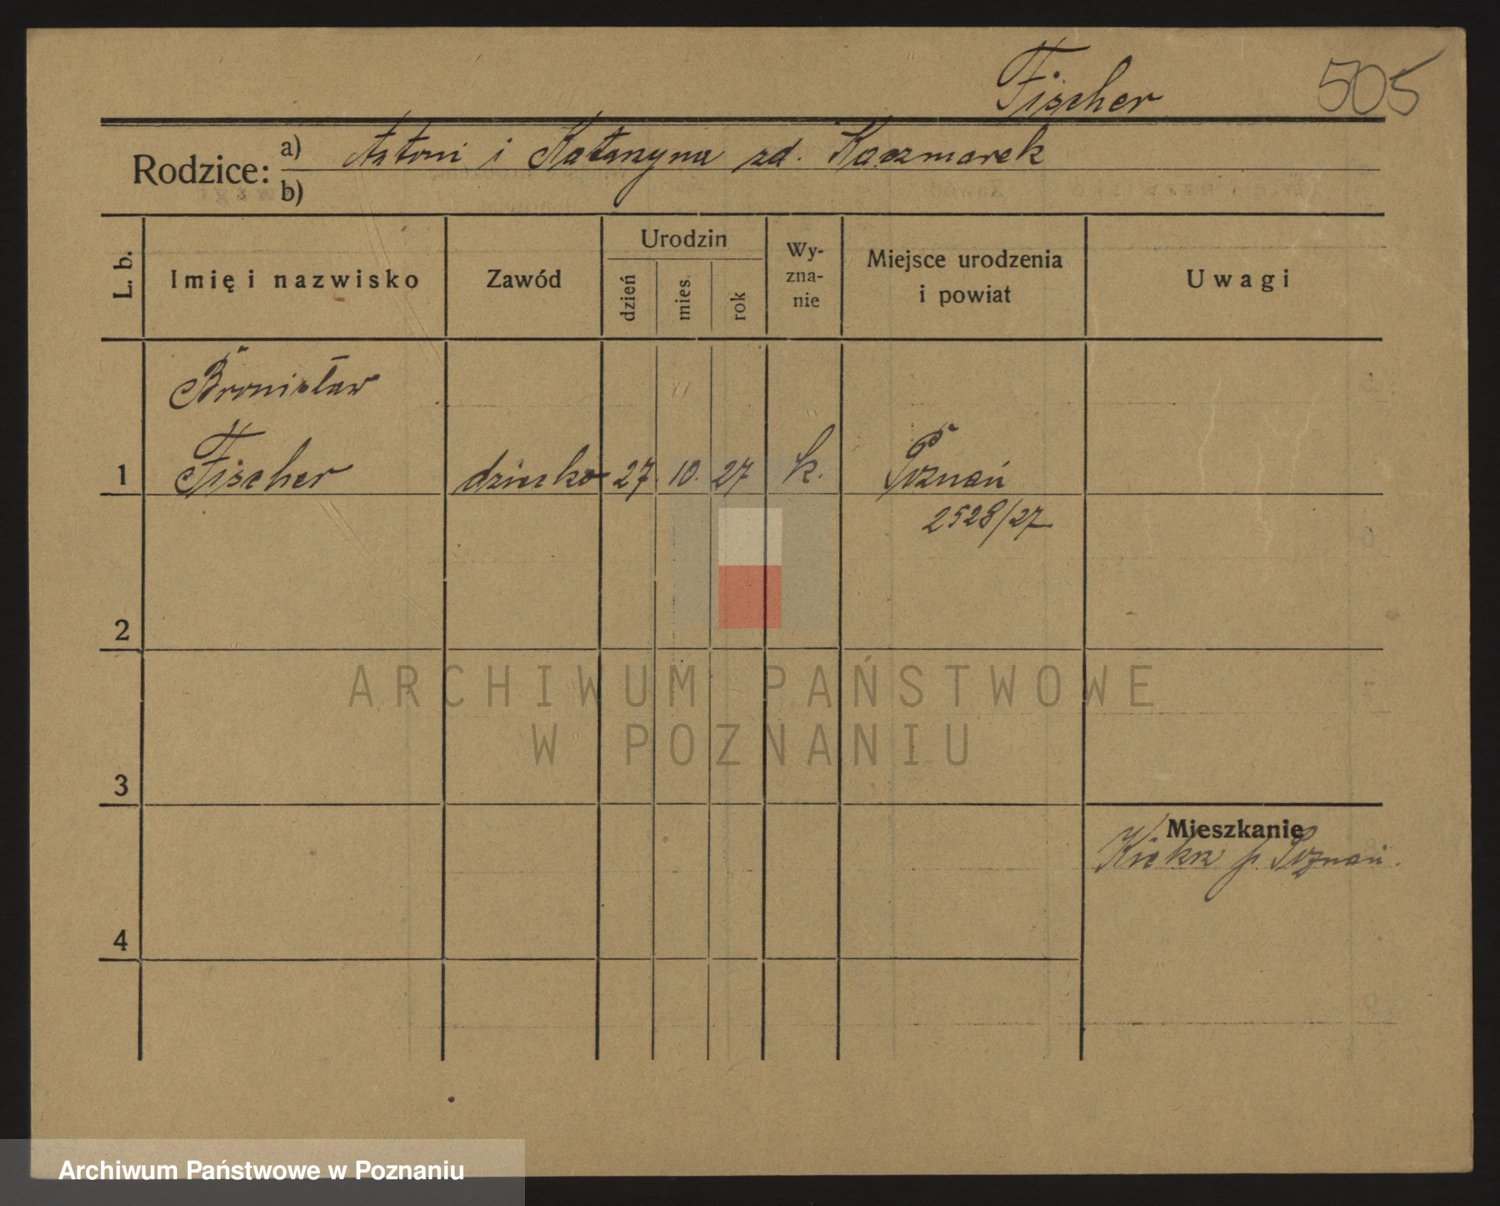 Fischer 505
Rodzice: a) Antoni i Katarzyna zd. Kaczmarek
b)
L. b.
Imię i nazwisko
Zawód
Urodzin
dzień
mies.
rok
Wy-
zna-
nie
Miejsce urodzenia
i powiat
Uwagi
Bronisław
1 Fischer dziecko 27. 10. 27 k. Poznań
2528/27
2
ARCHIWUM PAŃSTWOWE
W POZNANIU
3
Mieszkanie
Kiekrz p. Poznań.
4
Archiwum Państwowe w Poznaniu